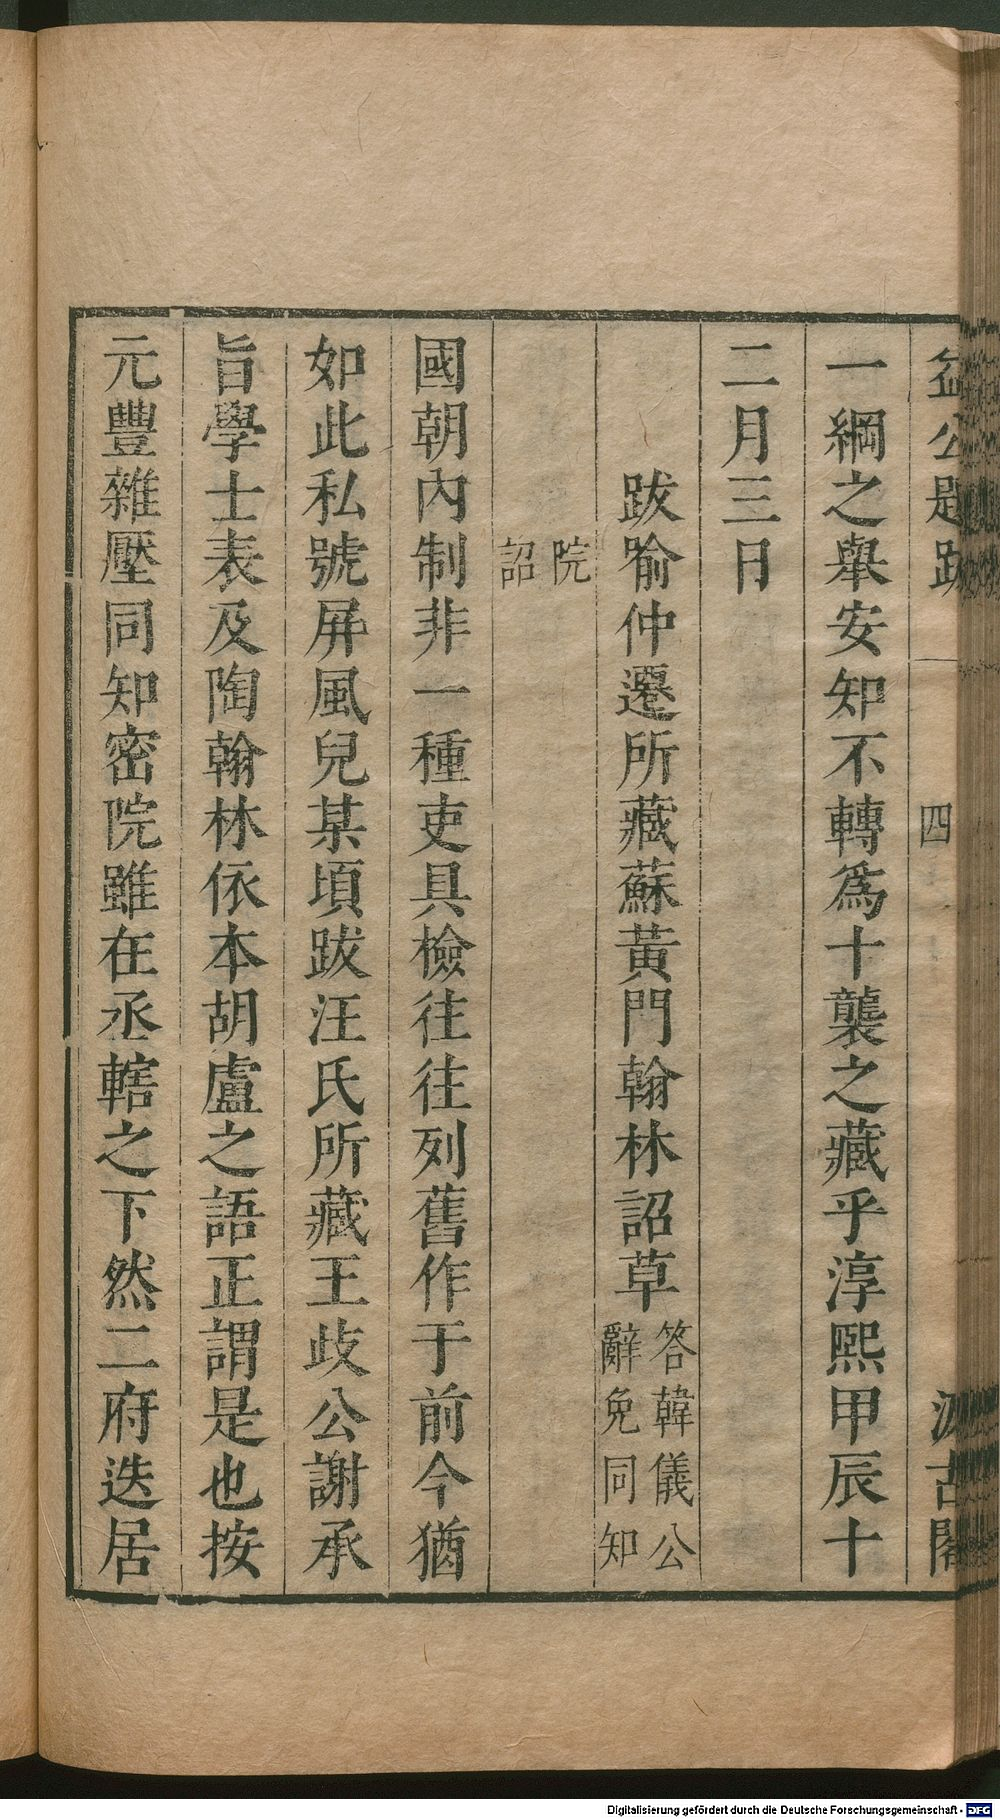 益公題跋 四 汲古閣
一綱之舉安知不轉爲十襲之藏乎淳熙甲辰十
二月三日
跋喻仲遷所藏蘇黃門翰林詔草 答韓儀公辭免同知
院詔
國朝內制非一種吏具檢往往列舊作于前今猶
如此私號屏風兒某頃跋汪氏所藏王歧公謝承
旨學士表及陶翰林依本胡盧之語正謂是也按
元豐雜壓同知密院雖在丞轄之下然二府迭居
Digitalisierung gefördert durch die Deutsche Forschungsgemeinschaft - DFG